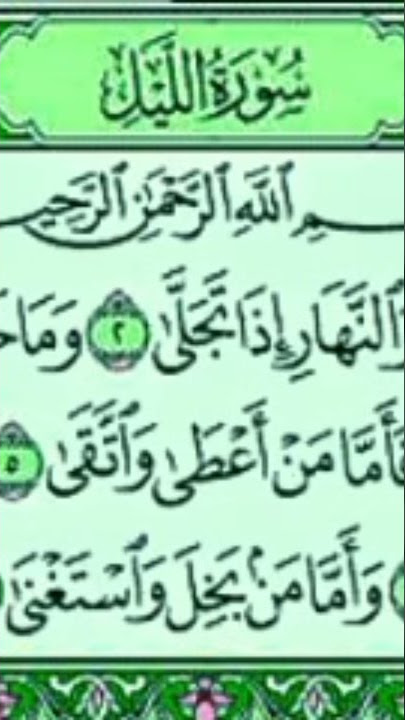 سُورَةُ اللَّيْلِ
ـسمِ ٱللَّهِ ٱلرَّحْمَٰنِ ٱلرَّحِيـ
وَٱلنَّهَارِ إِذَا تَجَلَّىٰ ٢ وَمَا خَـ
فَأَمَّا مَنْ أَعْطَىٰ وَٱتَّقَىٰ ٥
وَأَمَّا مَنۢ بَخِلَ وَٱسْتَغْنَىٰ